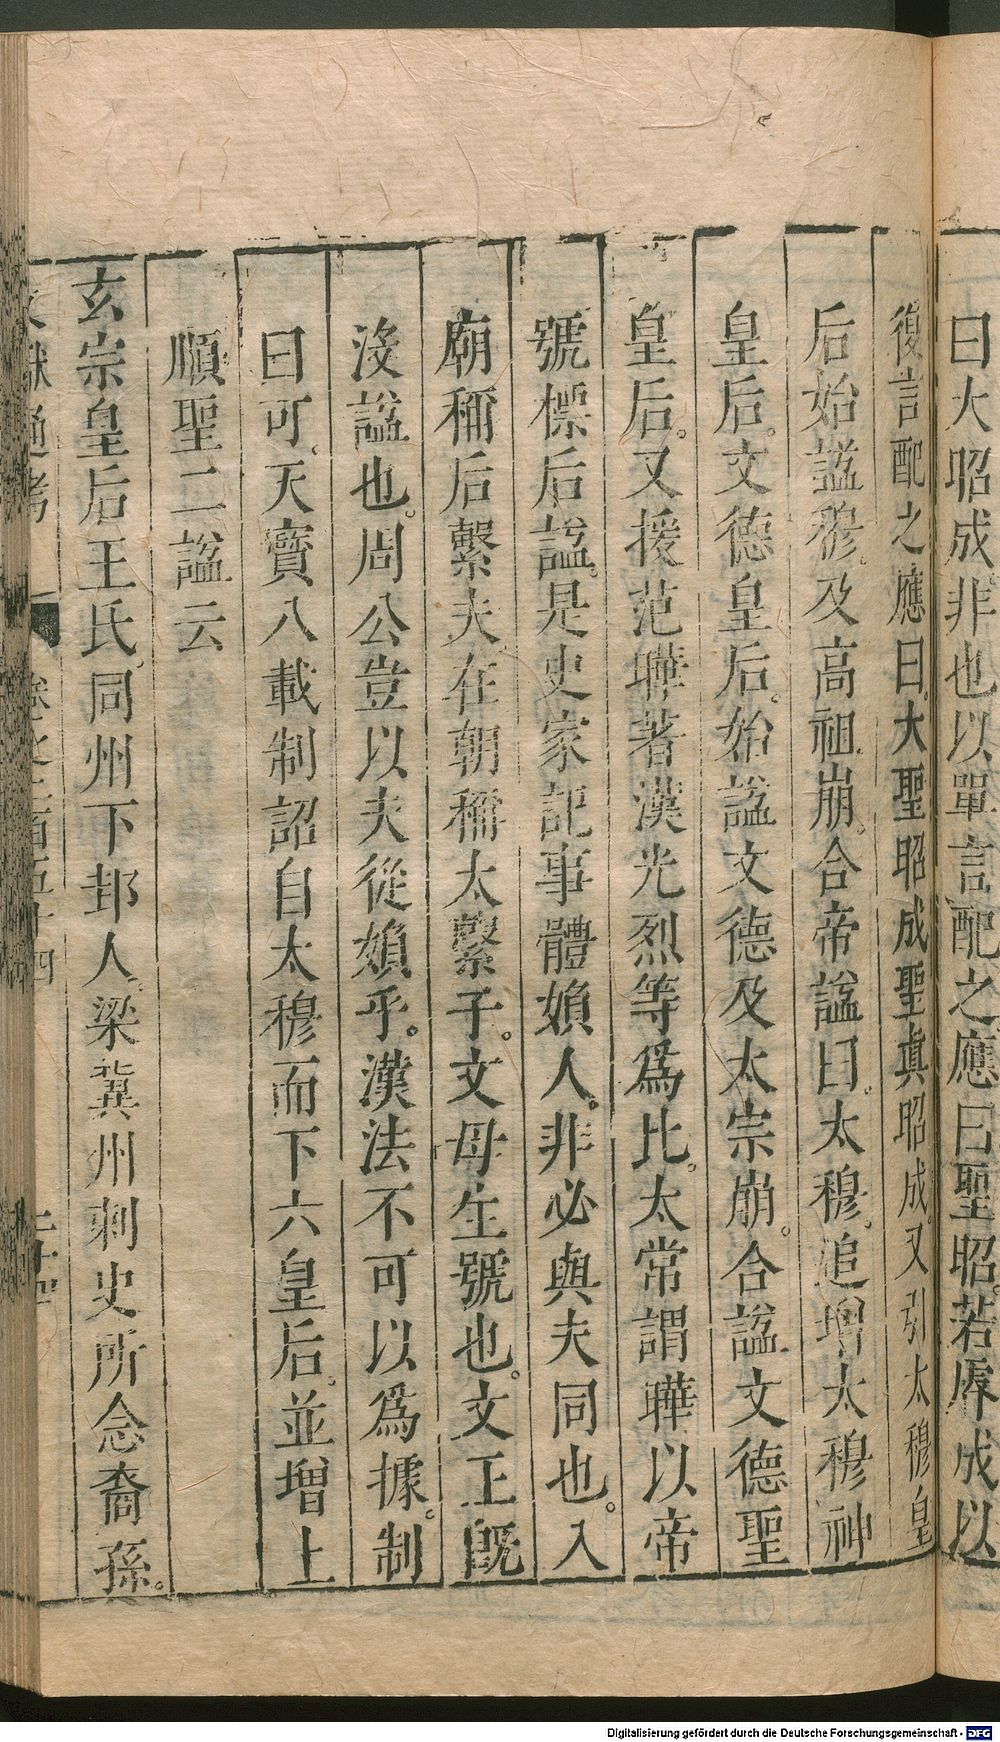 曰大昭成非也以單言配之應曰聖昭若虖成以
復言配之應曰大聖昭成聖眞昭成又引太穆皇
后始諡穆及高祖崩合帝諡曰太穆追增太穆神
皇后文德皇后始諡文德及太宗崩合諡文德聖
皇后又援范曄著漢光烈等爲比太常謂曄以帝
號標后諡是史家記事體媍人非必與夫同也入
廟稱后繫夫在朝稱太繫子文母生號也文王旣
沒諡也周公豈以夫從媍乎漢法不可以爲據制
曰可天寶八載制詔自太穆而下六皇后並增上
順聖二諡云
玄宗皇后王氏同州下邽人梁冀州刺史所念裔孫
文獻通考 卷之二百五十四 二十四
Digitalisierung gefördert durch die Deutsche Forschungsgemeinschaft - DFG